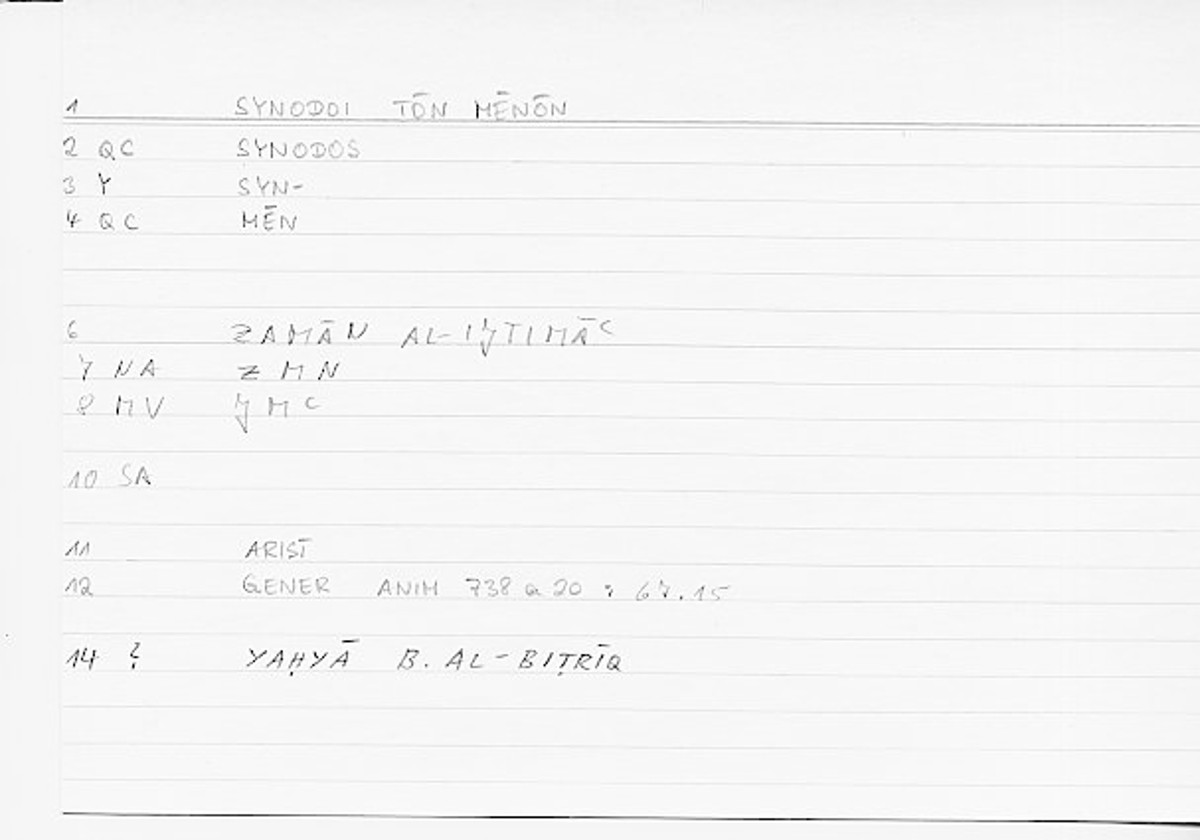 1 SYNODOI TŌN MĒNŌN
2 QC SYNODOS
3 Y SYN-
4 QC MĒN
6 ZAMĀN AL-IJTIMĀC
7 NA ZMN
8 MV JMC
10 SA
11 ARIST
12 GENER ANIM 738 a 20 : 67.15
14 ? YAḤYĀ B. AL-BIṬRĪQ